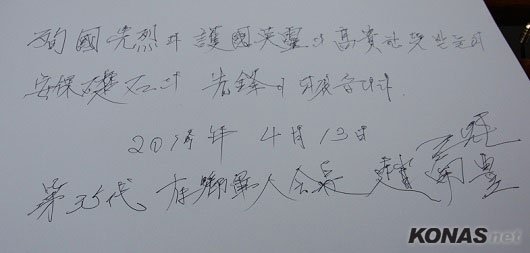 殉國先烈과 護國英靈의 高貴한 뜻 받들어
安保礎石의 先鋒이 되겠습니다.
2015年 4月 13日
第35代 在鄕軍人会長 趙南豊
KONASnet